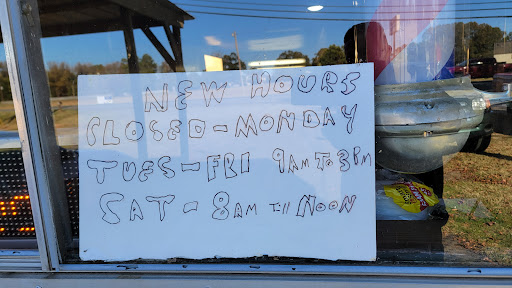 NEW HOURS
CLOSED-MONDAY
TUES-FRI 9AM To 3PM
SAT-8AM Till NOON